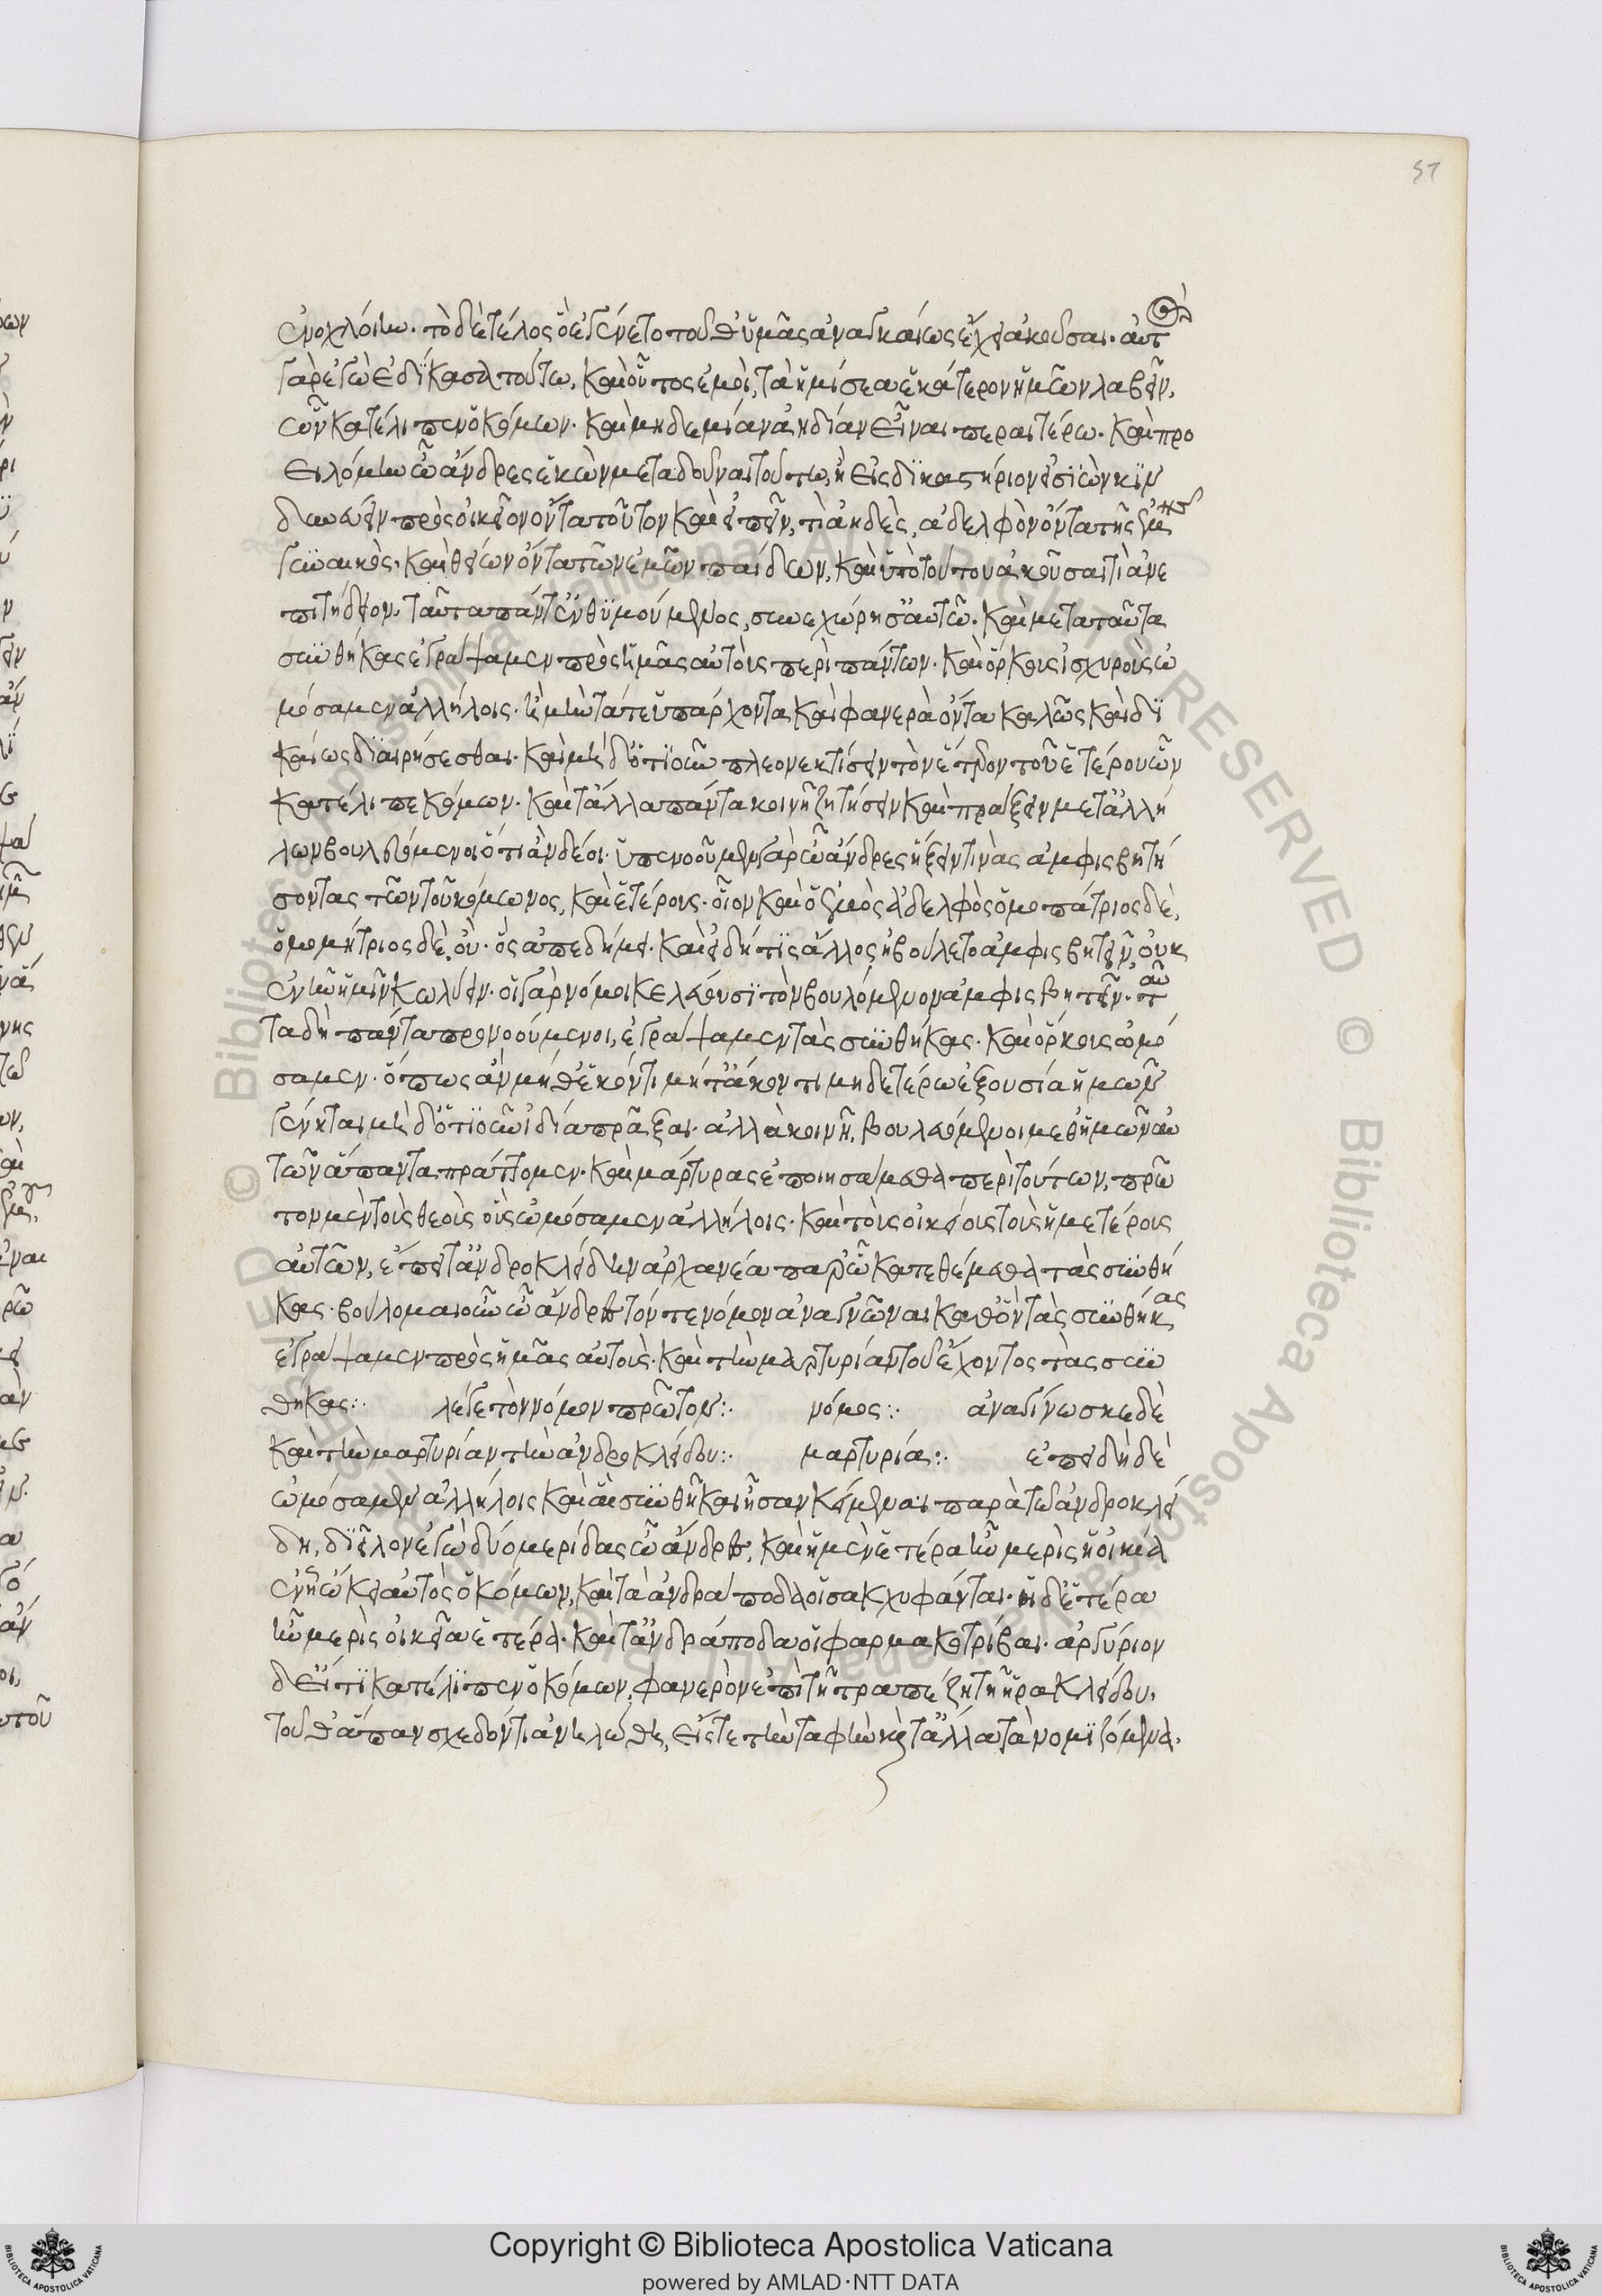 57
ἐνοχλοίην. τὸ δὲ τέλος ὃ ἐγένετο τοῦθ' ὑμᾶς ἀναγκαίως ἔχει ἀκοῦσαι. αὐτ
γὰρ ἐγὼ ἐδίκασα τούτω, καὶ οὗτος ἐμοὶ, τὰ ἡμίσεα ἑκάτερον ἡμῶν λαβεῖν,
ὧν κατέλιπεν ὁ κόμων. καὶ μηδεμίαν ἀηδίαν εἶναι περαιτέρω. καὶ προ
ειλόμην ὦ ἄνδρες ἑκὼν μεταδοῦναι τούτω, ἢ εἰς δικαστήριον εἰσιὼν κιν
δυνεύειν πρὸς οἰκεῖον ὄντα τοῦτον καὶ εἰπεῖν, τὶ ἀηδὲς, ἀδελφὸν ὄντα τῆς ἐμῆς
γυναικὸς. καὶ θεῖον ὄντα τῶν ἐμῶν παίδων, καὶ ὑπὸ τούτου ἀκοῦσαι τὶ ἀνε
πιτήδειον. ταῦτα πάντ' ἐνθυμούμενος, συνεχώρησ' αὐτῶ. καὶ μετὰ ταῦτα
συνθήκας ἐγράψαμεν πρὸς ἡμᾶς αὐτοὺς περὶ πάντων. καὶ ὅρκους ἰσχυροὺς ὠ
μόσαμεν ἀλλήλοις. ἦ μὴν τά τε ὑπάρχοντα καὶ φανερὰ ὄντα καλῶς καὶ δι
καίως διαιρήσεσθαι. καὶ μηδ' ὁτιοῦν πλεονεκτήσειν τὸν ἕτερον τοῦ ἑτέρου ὧν
κατέλιπε κόμων. καὶ τἄλλα πάντα κοινῆ ζητήσειν καὶ πράξειν μετ' ἀλλή
λων βουλευόμενοι ὅτι ἂν δέοι. ὑπενοοῦμεν γὰρ ὦ ἄνδρες ἥξειν τινὰς ἀμφισβητή
σοντας τῶν τοῦ κόμωνος, καὶ ἑτέρους. οἷον καὶ ὁ ἐμὸς ἀδελφὸς ὁμοπάτριος δὲ,
ὁμομήτριος δὲ, οὐ. ὃς ἀπεδήμει. καὶ εἰ δή τις ἄλλος ἠβούλετο ἀμφισβητεῖν, οὐκ
ἐνῆν ἡμῖν κωλύειν. οἱ γὰρ νόμοι κελεύουσι τὸν βουλόμενον ἀμφισβητεῖν. ταῦ
τα δὴ πάντα προνοούμενοι, ἐγράψαμεν τὰς συνθήκας. καὶ ὅρκους ὠμό
σαμεν. ὅπως ἂν μήθ' ἑκόντι μήτ' ἄκοντι μηδετέρω ἐξουσία ἡμῶν
γένηται μηδ' ὁτιοῦν ἰδία πρᾶξαι. ἀλλὰ κοινῆ, βουλευόμενοι μεθ' ἡμῶν αὐ
τῶν ἅπαντα πράττομεν. καὶ μάρτυρας ἐποιησάμεθα περὶ τούτων, πρῶ
τον μὲν τοὺς θεοὺς οὓς ὠμόσαμεν ἀλλήλοις. καὶ τοὺς οἰκείους τοὺς ἡμετέρους
αὐτῶν, ἔπειτ' ἀνδροκλείδην ἀρχανέα παρ' ὧ κατεθέμεθα τὰς συνθή
κας. βούλομαι οὖν ὦ ἄνδρες τόν τε νόμον ἀναγνῶναι καθ' ὃν τὰς συνθήκας
ἐγράψαμεν πρὸς ἡμᾶς αὐτοὺς. καὶ τὴν μαρτυρίαν τοῦ ἔχοντος τὰς συν
θήκας:. λέγε τὸν νόμον πρῶτον:. νόμος:. ἀναγίνωσκε δὲ
καὶ τὴν μαρτυρίαν τὴν ἀνδροκλείδου:. μαρτυρία:. ἐπειδὴ δὲ
ὠμόσαμεν ἀλλήλοις καὶ αἱ συνθῆκαι ἦσαν κείμεναι παρὰ τῶ ἀνδροκλεί
δη, διεῖλον ἐγὼ δύο μερίδας ὦ ἄνδρες, καὶ ἡ μὲν ἑτέρα ἦν μερὶς ἡ οἰκία
ἐν ἧ ὤκει αὐτὸς ὁ κόμων, καὶ τὰ ἀνδράποδα οἱ σακχυφάνται. ἡ δ' ἑτέρα
ἦν μερὶς οἰκεία ἑτέρα. καὶ τἀνδράποδα οἱ φαρμακοτρίβαι. ἀργύριον
δ' εἴ τι κατέλιπεν ὁ κόμων, φανερὸν ἐπὶ τῆ τραπέζη τῆ ἡρακλείδου,
τοῦθ' ἅπαν σχεδόν τι ἀνηλώθη, εἴς τε τὴν ταφὴν καὶ τἄλλα τὰ νομιζόμενα.
© Biblioteca Apostolica Vaticana ALL RIGHTS RESERVED
Copyright © Biblioteca Apostolica Vaticana
powered by AMLAD·NTT DATA